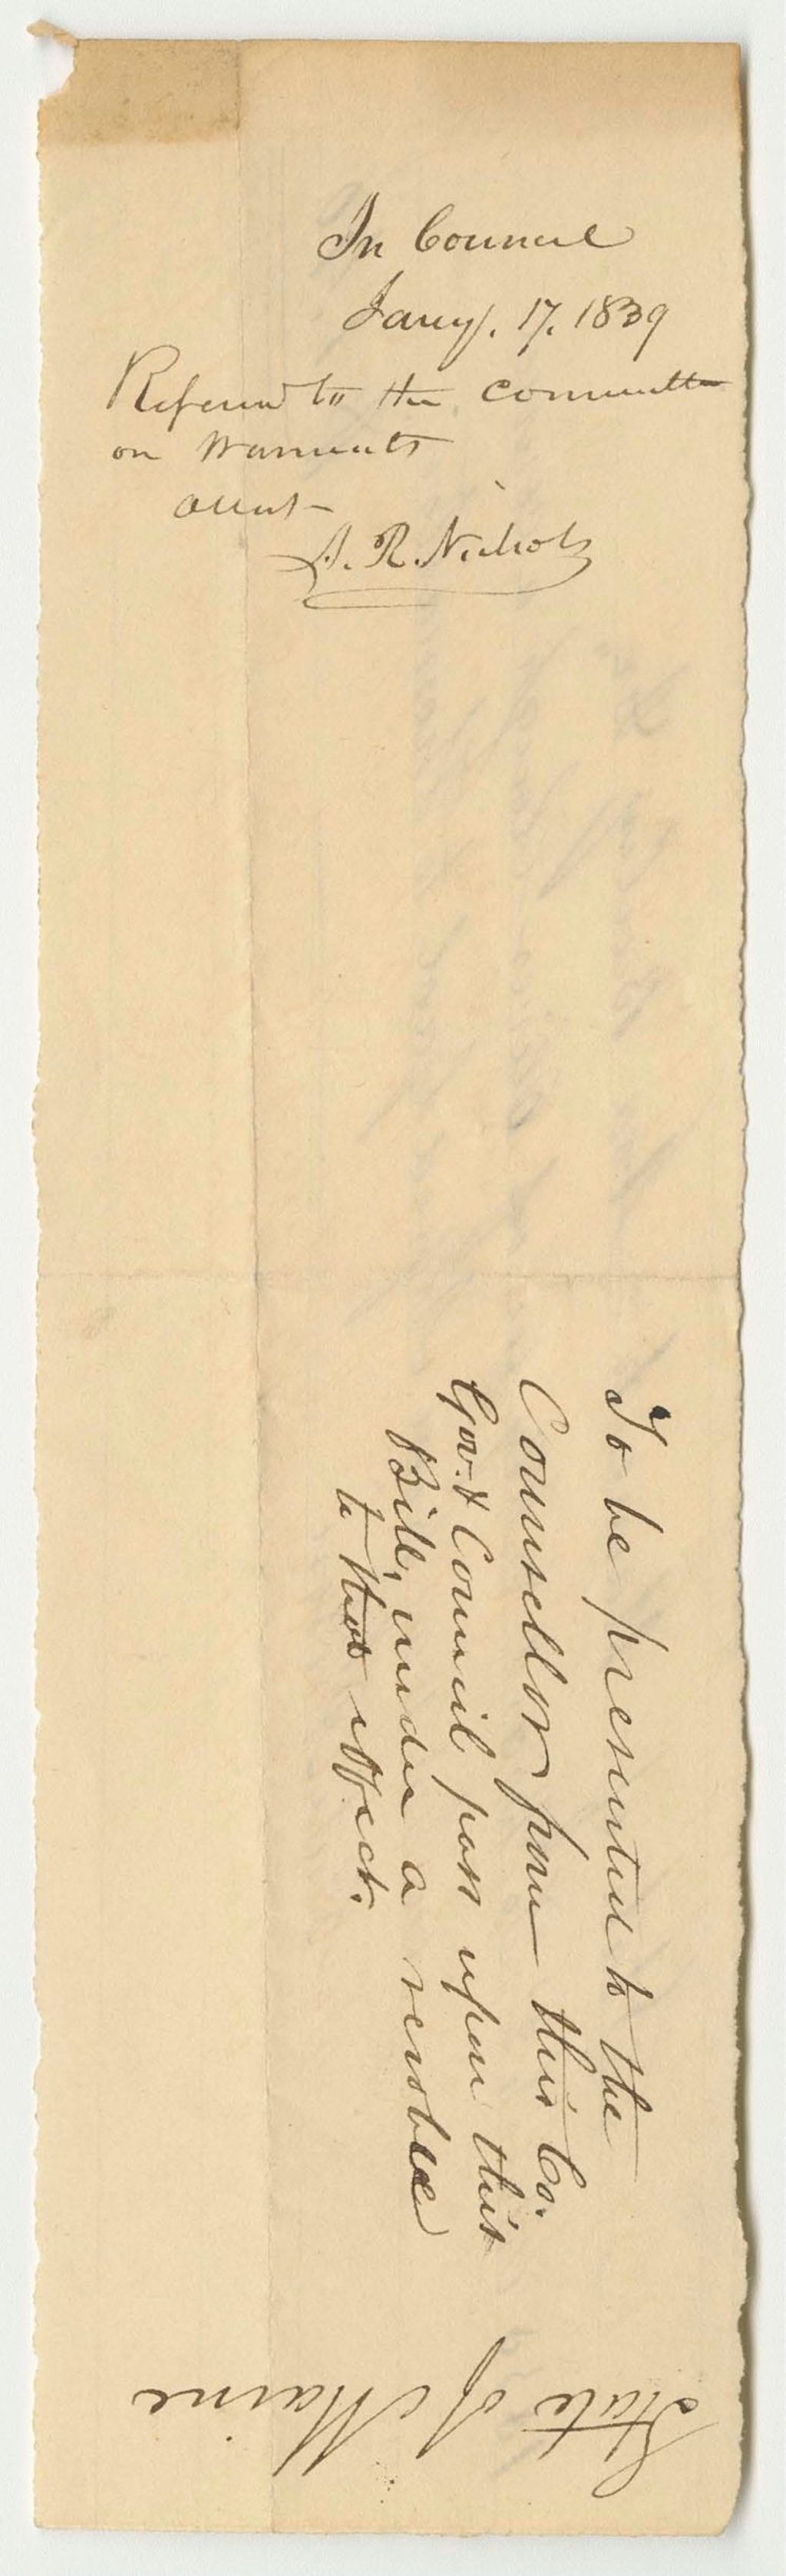 In Council
Jany. 17. 1839
Referred to the Committee
on Warrants
attest
A. R. Nichols
To be presented to the
Counsellor from this Co.
Gov. & Council pass upon this
Bill, under a resolve
to that effect.
State of Maine